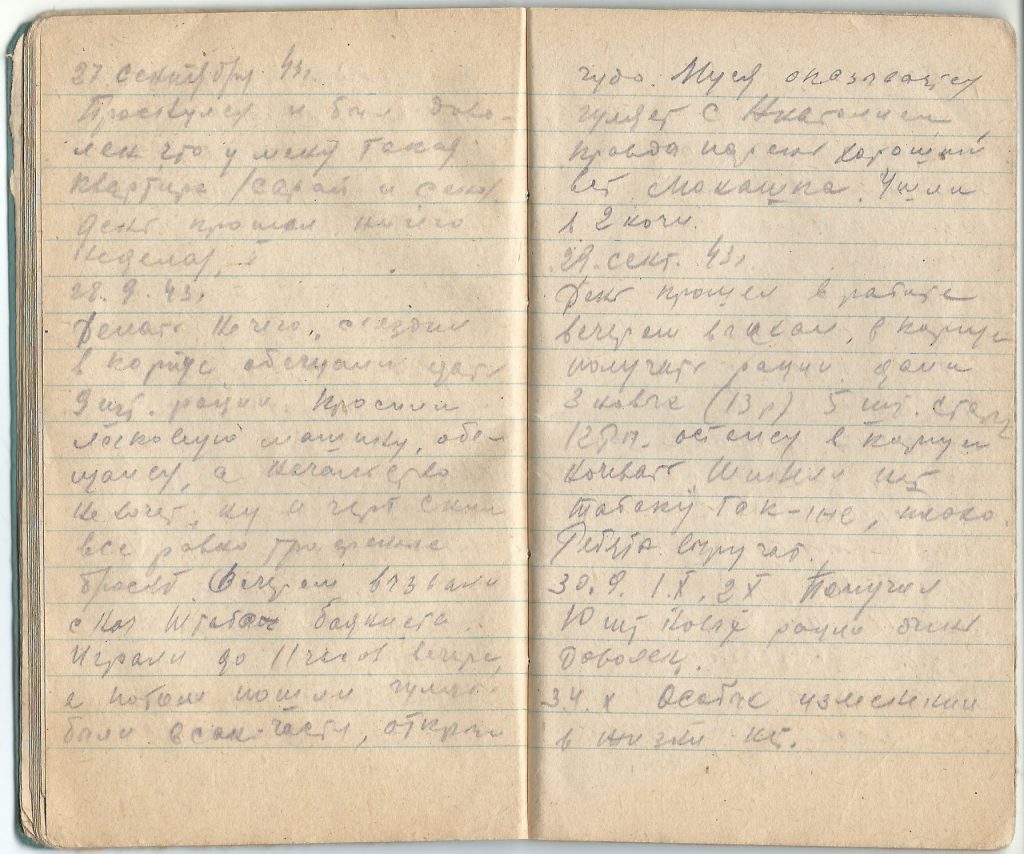 27 сентября 43г.
Проснулся и был дово-
лен что у меня такая
квартира /сарай и сено/
день прошел ничего
неделал,
28. 9. 43г
Делать нечего, съездил
в корпус обещали дать
9 шт. рации. Просили
легковую машину, обе-
щался, а начальство
не хочет, ну и черт с ним
все равно
бросят. Вечером вызвали
с баяниста.
Играли до 11 часов вечера,
а потом пошли гулять.
были в сан-части,
чудо. Муся оказывается
гуляет с Анатолием,
правда парень хороший
вет Мокашка. Ушли
в 2 ночи.
29. сент. 43г
День прошел в работе
вечером выехал в корпус
получать рации дали
3 новые (13р) 5 шт. старых
12РП. остался в корпусе
ночевать.
табаку так-же, плохо.
Ребята выручат.
30. 9. 1.X. 2X Получил
10 шт новые рации был
доволен.
3.4. X Особых изменений
в жизни нет.